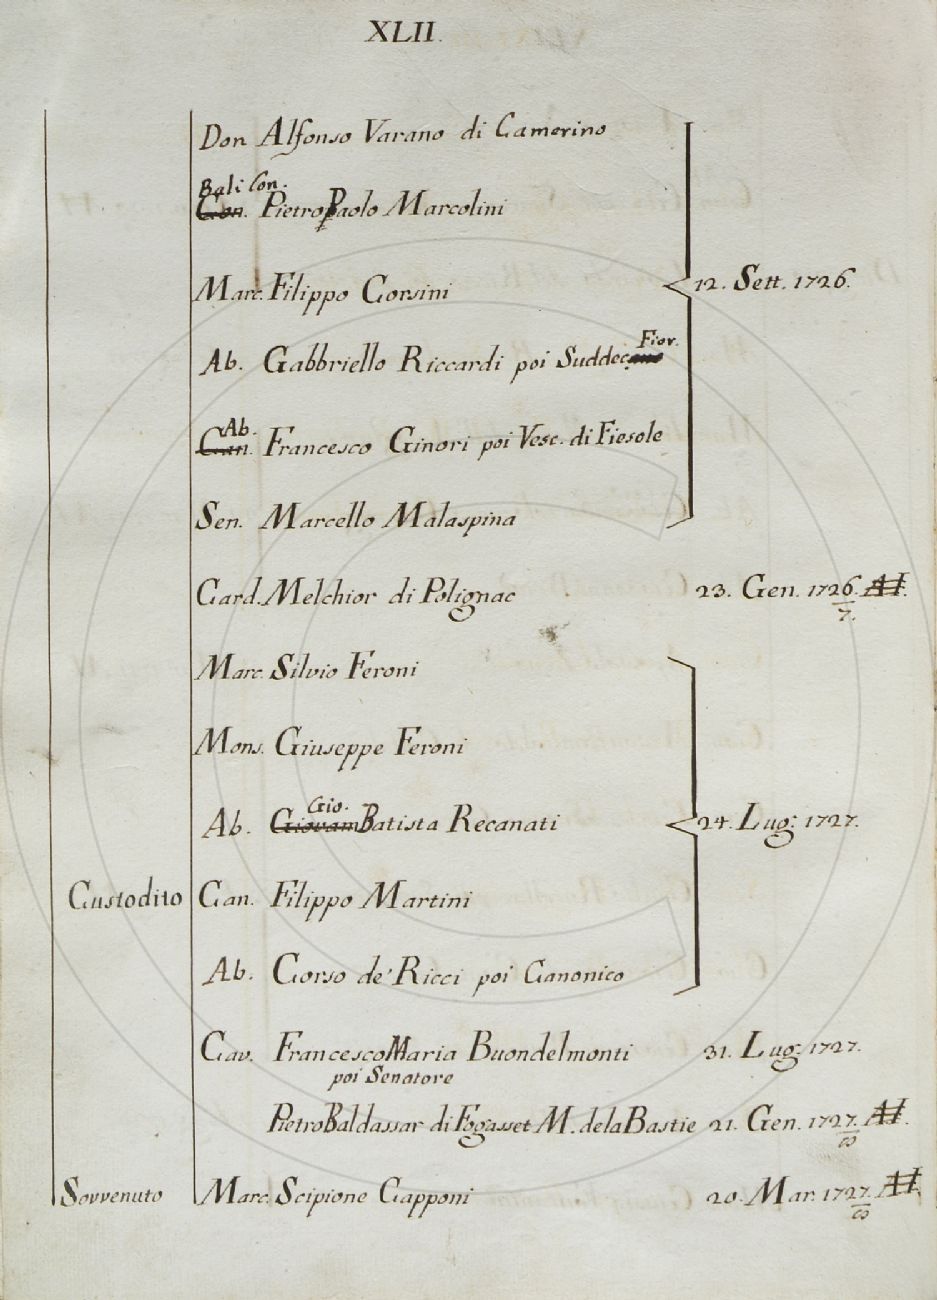 XLII.
Don Alfonso Varano di Camerino
Bali Con.
Con. Pietro Paolo Marcolini
Marc. Filippo Corsini 12. Sett. 1726.
Fior.
Ab. Gabbriello Riccardi poi Suddecano
Ab.
Can. Francesco Ginori poi Vesc. di Fiesole
Sen. Marcello Malaspina
Card. Melchior di Polignac 23. Gen. 1726.
7.
Marc. Silvio Feroni
Mons. Giuseppe Feroni
Gio.
Ab. Giovam Batista Recanati 24. Lug: 1727.
Custodito Can. Filippo Martini
Ab. Corso de' Ricci poi Canonico
Cav. Francesco Maria Buondelmonti 31. Lug: 1727.
poi Senatore
Pietro Baldassar di Fogasset M. de la Bastie 21. Gen. 1727.
8
Sovvenuto Marc. Scipione Capponi 20. Mar. 1727.
8